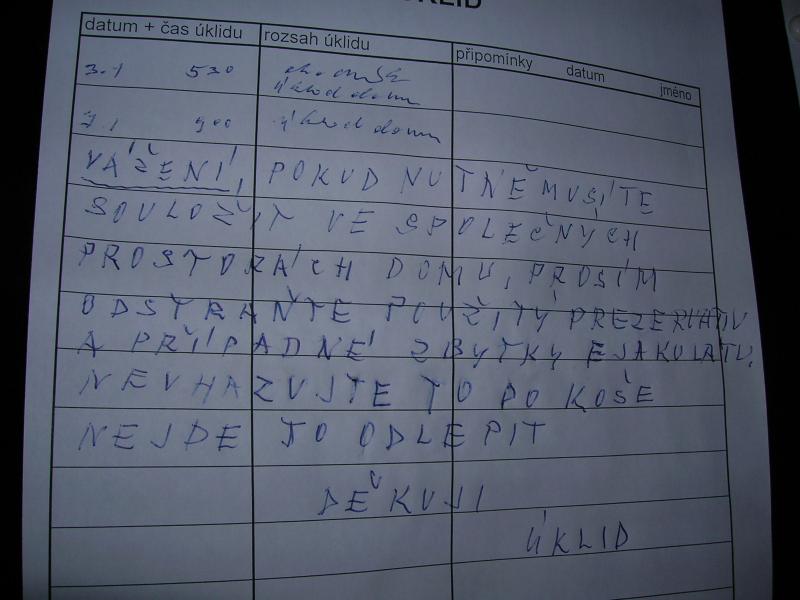 ÚKLID
datum + čas úklidu rozsah úklidu připomínky datum jméno
3.1 530
úklid domu
7.1 900 úklid domu
VÁŽENÍ, POKUD NUTNĚ MUSÍTE
SOULOŽIT VE SPOLEČNÝCH
PROSTORÁCH DOMU, PROSÍM
ODSTRAŇTE POUŽITÝ PREZERVATIV
A PŘÍPADNÉ ZBYTKY EJAKULÁTU.
NEVHAZUJTE TO DO KOŠE
NEJDE TO ODLEPIT
DĚKUJI
ÚKLID